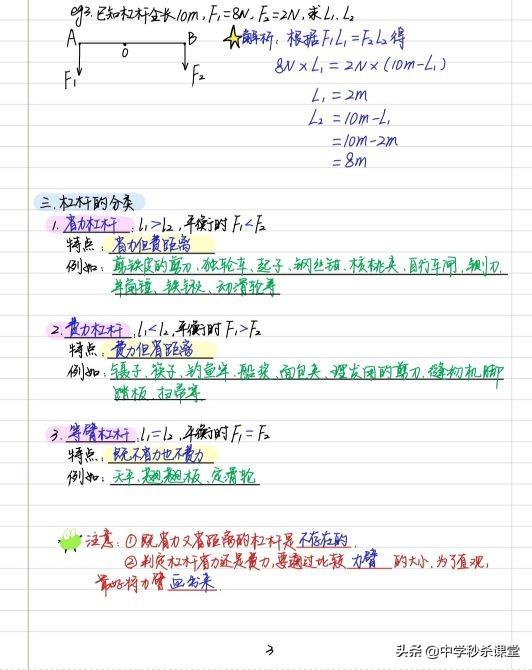 eg3. 已知杠杆全长10m, F₁=8N, F₂=2N, 求L₁. L₂
A B
O
F₁ F₂
解析: 根据F₁L₁=F₂L₂得
8N×L₁ = 2N×(10m-L₁)
L₁ = 2m
L₂ = 10m-L₁
=10m-2m
=8m
三. 杠杆的分类
1. 省力杠杆: l₁>l₂, 平衡时 F₁<F₂
特点: 省力但费距离
例如: 剪铁皮的剪刀、独轮车、起子、钢丝钳、核桃夹、自行车闸、铡刀、
羊角锤、铁锹、动滑轮等
2. 费力杠杆: l₁<l₂, 平衡时 F₁>F₂
特点: 费力但省距离
例如: 镊子、筷子、钓鱼竿、船桨、面包夹、理发用的剪刀、缝纫机脚
踏板、扫帚等
3. 等臂杠杆: l₁=l₂, 平衡时 F₁=F₂
特点: 既不省力也不费力
例如: 天平、翘翘板、定滑轮
注意: ① 既省力又省距离的杠杆是不存在的.
② 判定杠杆省力还是费力,要通过比较 力臂 的大小,为了直观,
最好将力臂画出来.
3
头条 @中学秒杀课堂